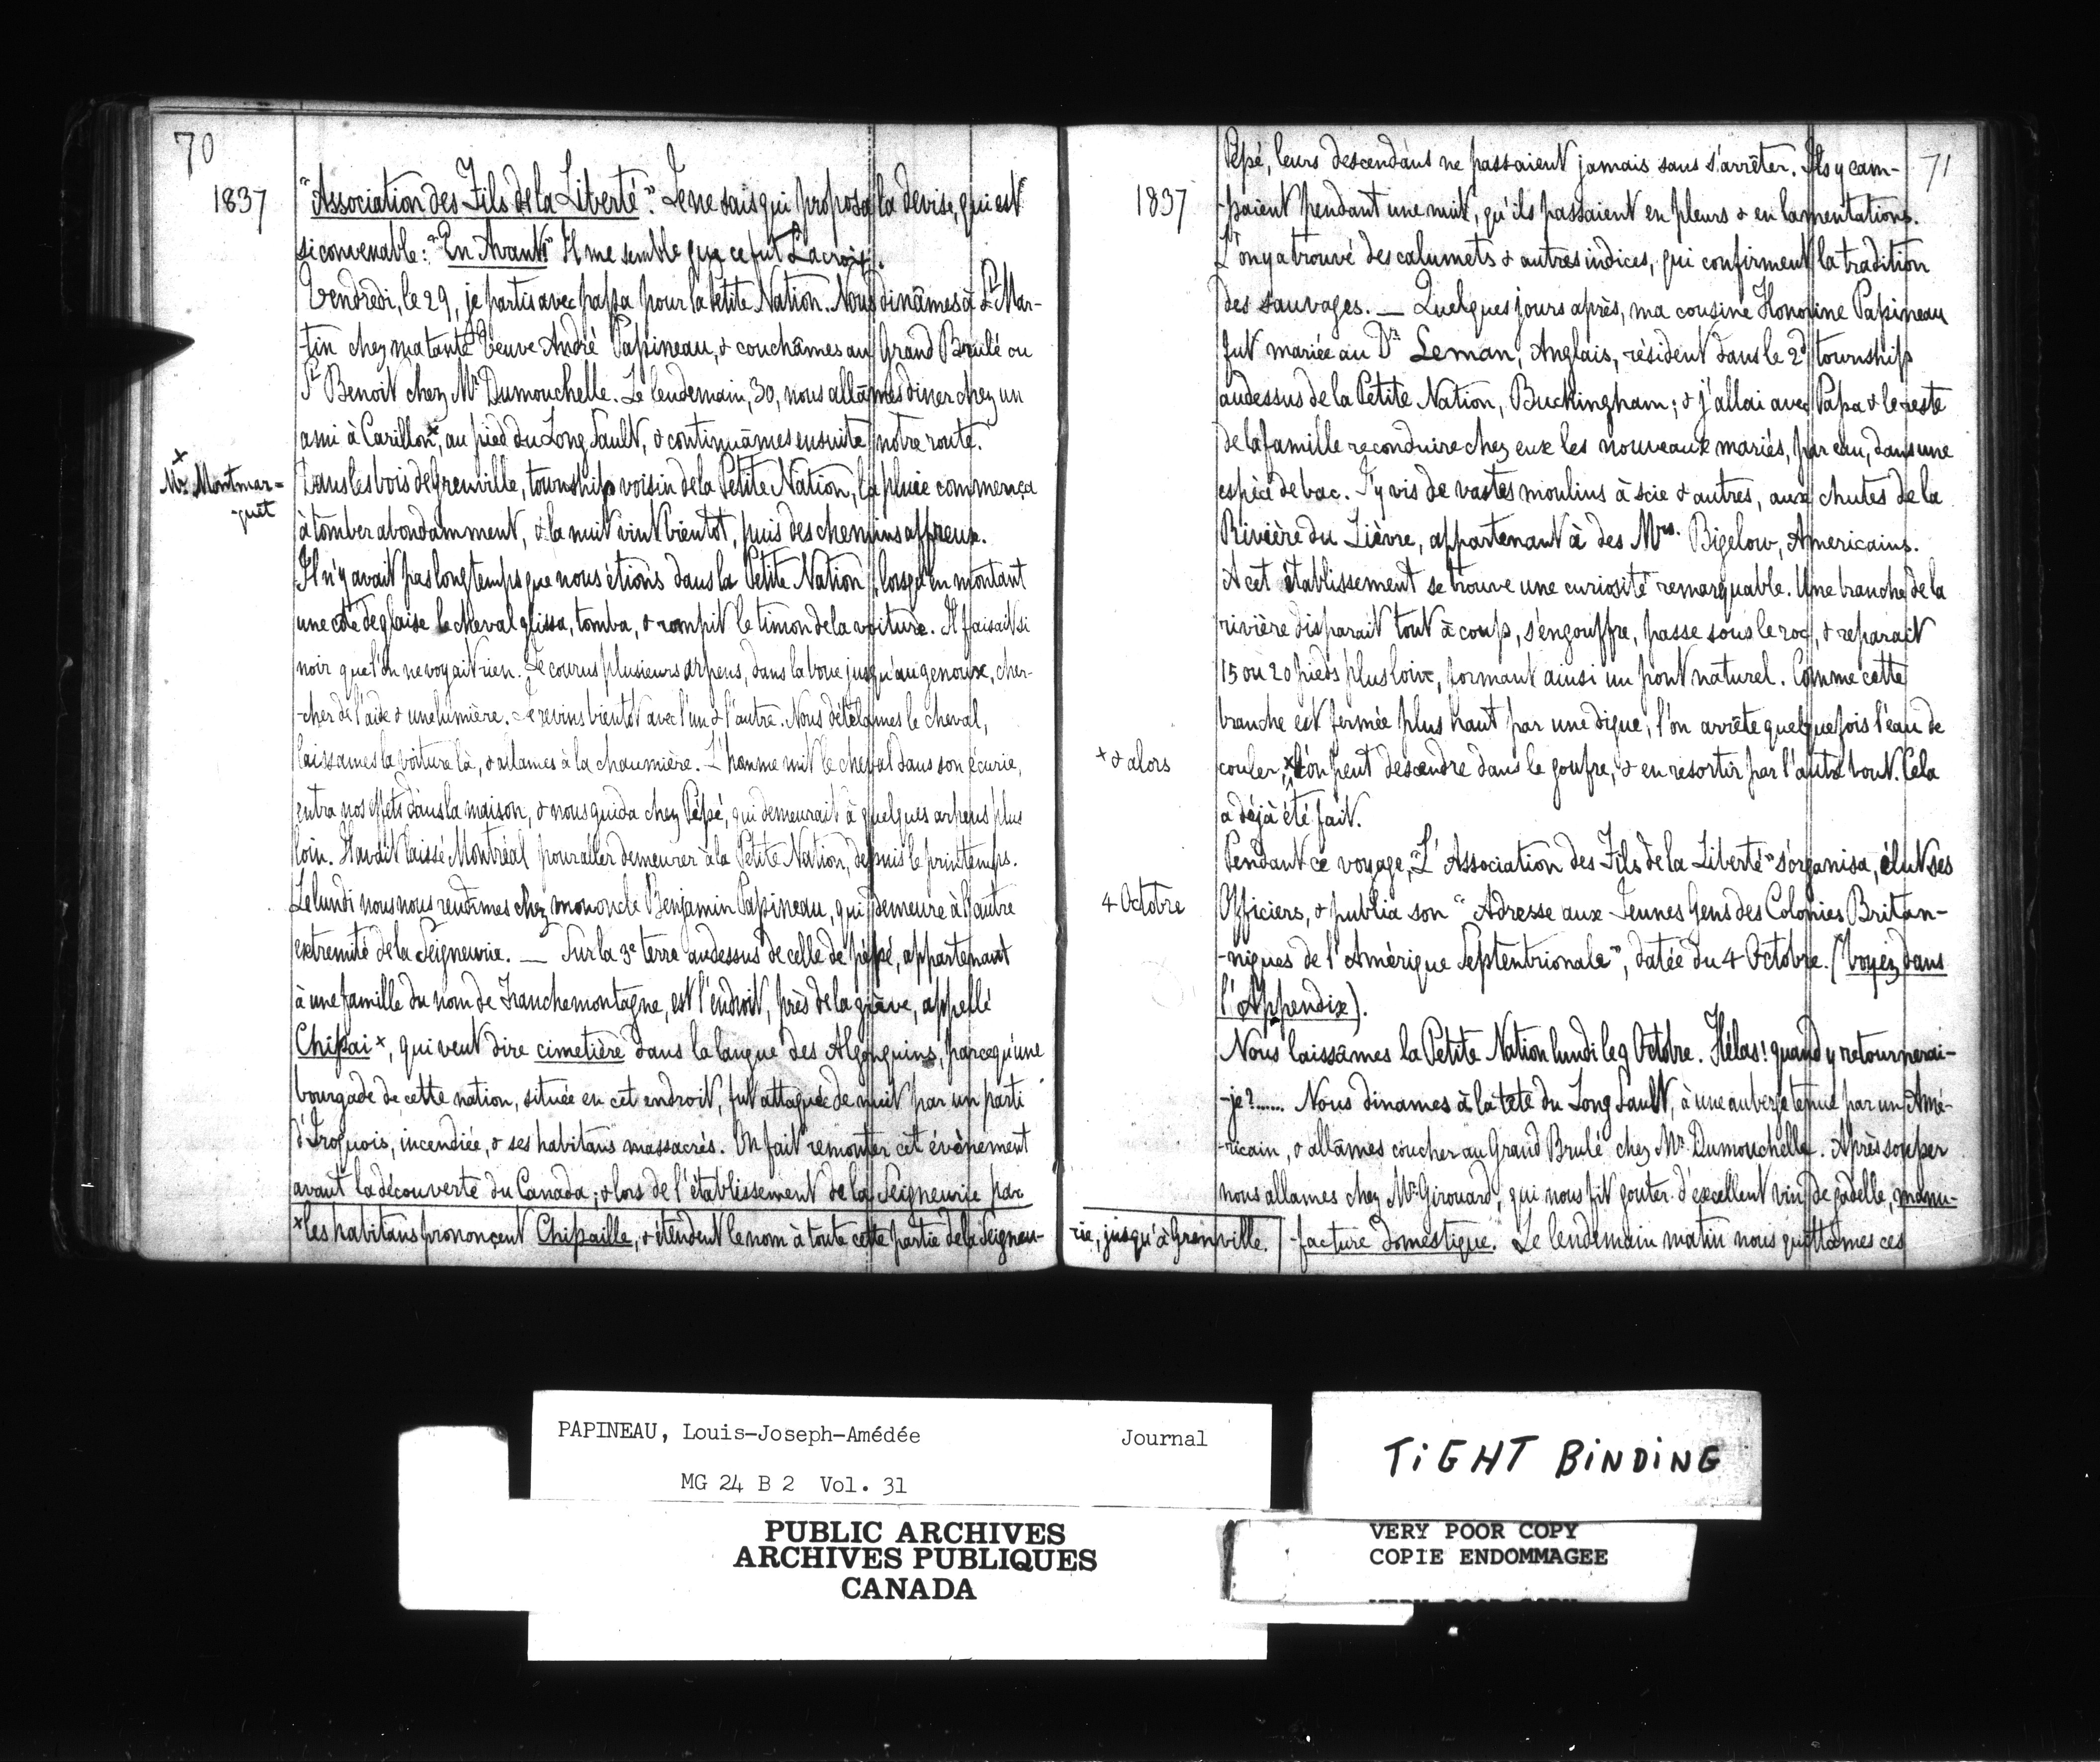 70
1837
"Association des Fils de la Liberté". Je ne sais qui proposa la devise, qui est
si convenable: "En Avant!" Il me semble que ce fut Lacroix.
Vendredi, le 29, je partis avec papa pour la Petite Nation. Nous dinâmes à St Mar-
-tin chez ma tante Veuve André Papineau, & couchâmes au Grand Brulé ou
St Benoit chez Mr Dumouchelle. Le lendemain, 30, nous allâmes diner chez un
ami à Carillon x, au pied du Long Sault, & continuâmes ensuite notre route.
x
Mr Montmar=
-quet
Dans les bois de Grenville, township voisin de la Petite Nation, la pluie commença
à tomber abondamment, & la nuit vint bientot, puis des chemins affreux.
Il n'y avait pas longtemps que nous étions dans la Petite Nation, lorsqu'en montant
une côte de glaise le cheval glissa, tomba, & rompit le timon de la voiture. Il faisait si
noir que l'on ne voyait rien. Je courus plusieurs arpens, dans la boue jusqu'au genoux, cher-
-cher de l'aide & une lumière. Je revins bientot avec l'un & l'autre. Nous dételames le cheval,
laissames la voiture là, & allames à la chaumière. L'homme mit le cheval dans son écurie,
entra nos effets dans la maison, & nous guida chez Pépé, qui demeurait à quelques arpens plus
loin. Il avait laissé Montréal pour aller demeurer à la Petite Nation, depuis le printemps.
Le lundi nous nous rendîmes chez mon oncle Benjamin Papineau, qui demeure à l'autre
extremité de la Seigneurie. — Sur la 3e terre audessus de celle de pépé, appartenant
à une famille du nom de Franchemontagne, est l'endroit, près de la grève, appellé
Chipai x, qui veut dire cimetière dans la langue des Algonquins, parcequ'une
bourgade de cette nation, située en cet endroit, fut attaquée de nuit par un parti
d'Iroquois, incendiée, & ses habitans massacrés. On fait remonter cet évènement
avant la découverte du Canada; & lors de l'établissement de la Seigneurie par
x les habitans prononçent Chipaille, & étendent le nom à toute cette partie de la Seigneu-
71
1837
Pépé, leurs descendans ne passaient jamais sans s'arrêter. Ils y cam-
-paient pendant une nuit, qu'ils passaient en pleurs & en lamentations.
L'on y a trouvé des calumets & autres indices, qui confirment la tradition
des sauvages. — Quelques jours après, ma cousine Honorine Papineau
fut mariée au Dr Leman, Anglais, résident dans le 2d township
audessus de la Petite Nation, Buckingham; & j'allai avec Papa & le reste
de la famille reconduire chez eux les nouveaux mariés, par eau, dans une
espèce de bac. J'y vis de vastes moulins à scie & autres, aux chutes de la
Rivière du Lièvre, appartenant à des Mrs. Bigelow, Americains.
A cet établissement se trouve une curiosité remarquable. Une branche de la
rivière disparait tout à coup, s'engouffre, passe sous le roc, & reparait
15 ou 20 pieds plus loin, formant ainsi un pont naturel. Comme cette
branche est fermée plus haut par une digue, l'on arrête quelquefois l'eau de
x & alors
couler, x l'on peut descendre dans le goufre, & en resortir par l'autre bout. Cela
a déjà été fait.
Pendant ce voyage, "L'Association des Fils de la Liberté" s'organisa, élut ses
4 Octobre
Officiers, & publia son "Adresse aux Jeunes Gens des Colonies Britan-
-niques de l'Amérique Septentrionale", datée du 4 Octobre. (Voyez dans
l'Appendix).
Nous laissâmes la Petite Nation lundi le 9 Octobre. Hélas! quand y retournerai-
-je?...... Nous dinames à la tete du Long Sault, à une auberge tenue par un Amé-
-ricain, & allâmes coucher au Grand Brulé chez Mr Dumouchelle. Après souper
nous allames chez Mr Girouard, qui nous fit gouter d'excellent vin de gadelle, manu-
rie, jusqu'à Grenville.
-facture domestique. Le lendemain matin nous quittâmes ces
PAPINEAU, Louis-Joseph-Amédée Journal
MG 24 B 2 Vol. 31
PUBLIC ARCHIVES
ARCHIVES PUBLIQUES
CANADA
TIGHT BINDING
VERY POOR COPY
COPIE ENDOMMAGEE
VERY POOR COPY